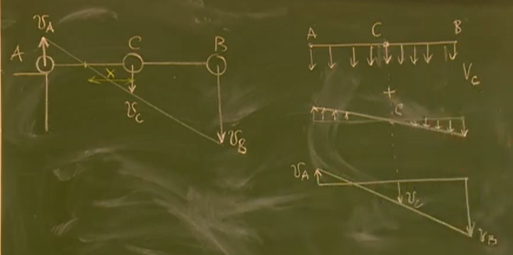 v_A
A
C
B
x
v_C
v_B
A
C
B
v_C
+
C
v_A
v_C
v_B